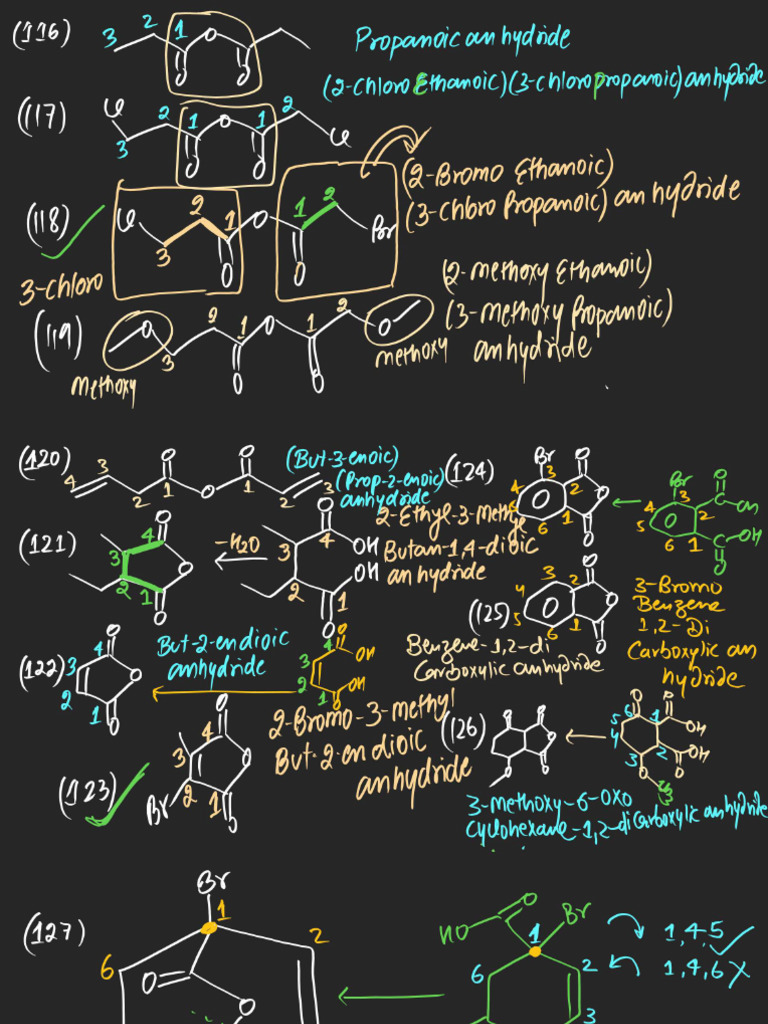 (116) 3 2 1 O O O Propanoic anhydride
(2-chloro Ethanoic)(3-chloropropanoic) anhydride
(117) Cl 3 2 1 O 1 2 Cl O O
(118) Cl 3 2 1 O O 1 2 Br O
(2-Bromo Ethanoic)
(3-Chloro Propanoic) anhydride
3-chloro
(119) O 3 2 1 O O 1 2 O O
(2-methoxy Ethanoic)
(3-methoxy Propanoic)
anhydride
methoxy
methoxy
(120) 4 3 2 1 O O O 1 2 3
(But-3-enoic)
(Prop-2-enoic)
anhydride
(121) 4 3 2 1 O O O
-H2O
O 4 OH 3 OH 2 1 O
2-Ethyl-3-methyl
Butan-1,4-dioic
anhydride
(122) 4 3 2 1 O O O
But-2-endioic
anhydride
O 4 OH 3 2 1 OH O
(123) 4 3 2 1 O O O Br
2-Bromo-3-methyl
But-2-endioic
anhydride
(124) Br 3 4 5 6 2 1 O O O
Br 3 4 5 6 2 1 O C OH C OH O
3-Bromo
Benzene
1,2-Di
Carboxylic an
hydride
(125) 3 4 5 6 2 1 O O O
Benzene-1,2-di
Carboxylic anhydride
(126) O O O O O
O 6 5 4 3 1 2 O OH OH O O
CH3
3-methoxy-6-oxo
cyclohexane-1,2-dicarboxylic anhydride
(127) Br 1 2 6 O O
HO O Br 1 2 3 6
1,4,5
1,4,6 X